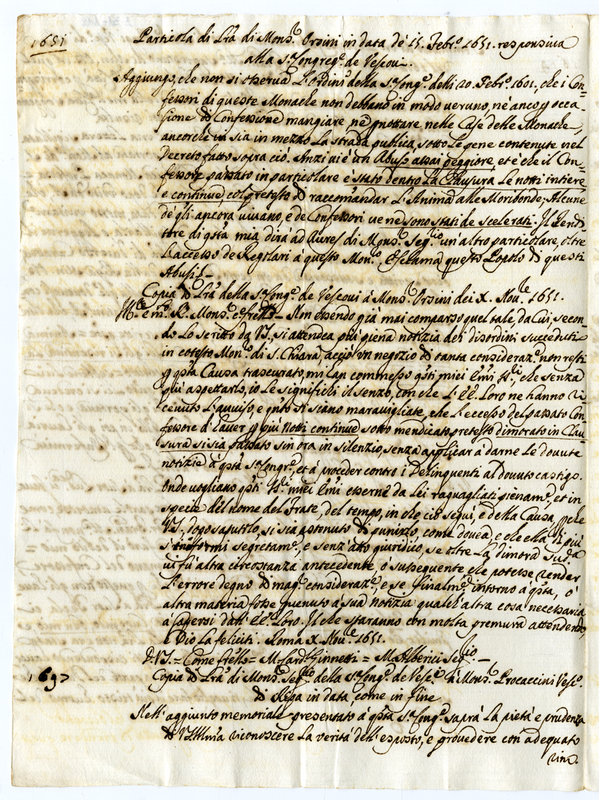 1651
Particola di Lr̃a di Mons.r Orsini in data de' 15. Febr.o 1651. responsiva
alla S. Congreg.e de Vescovi.
Aggiungo, che non si osserva l'ordine della S. Cong.e delli 20. Febr.o 1601. che i Con-
fessori di queste Monache non debbano in modo veruno, nè anco p occa-
sione di Confessione mangiare, nè pnottare nelle Case delle Monache,
ancorchè vi sia in mezzo la strada publica, sotto le pene contenute nel
Decreto fatto sopra ciò. Anzi vi è un Abuso assai peggiore, et è che il Con-
fessore passato in particolare è stato dentro la Clausura le notti intiere
e continue col pretesto di raccomandar l'Anima alle Moribonde; Alcune
de gli ancora vivano, e de Confessori ve ne sono stati de scelerati. Il Lend
tore di qsta mia dirà ad Aures di Mons.r Seg.rio un'altro particolare, oltre
l'accesso de Regolari à questo Mon.o Esclama questo Popolo di questi
Abusi. –
Copia di Lr̃a della S. Cong.e de Vescovi à Mons.r Orsini dei X. Nov.re 1651.
M.to e m. R. Mons.r Frello – Non essendo già mai comparso quel tale, da Cui, secon-
do lo scritto da V.S., si attendea più piena notizia dei disordini succeduti
in cotesto Mon.o di S. Chiara, acciò un negozio di tanta consideraz.e non resti
p qsta Causa trascurato, mi han commesso qsti miei Emi SS.ri, che senza
più aspettarlo, io le significhi il senzo, con che l'EE. loro ne hanno ri-
cevuto l'avviso, e qnto si siano maravigliate, che l'eccesso del passato Con
fessore d'haver p più Notti continue sotto mendicato pretesto dimorato in Clau
sura si sia passato sin ora in silenzio senza applicar à darne le dovute
notizie à qsta S. Congr.e, et à proceder contro i Delinquenti al dovuto castigo.
Onde vogliano qsti SS.ri miei Emi esserne da lei ragguagliati pienam.e, et in
specie del nome del Frate, del tempo, in che ciò seguì, e della Causa, pche
V.S., dopo saputolo, si sia astenuto di punirlo, come dovea, e che ella di più
s'informi segretam.e, e senz'atto giuridico, se oltre la dimora sud.a
vi fù altra circostanza antecedente, ò susseguente che potesse render
l'errore degno di mag.r consideraz.e, e se finalm.e intorno à qsta, ò
altra materia fosse pvenuto à sua notizia qualch'altra cosa necessaria
à sapersi dall'EE. loro. Il che staranno con molta premura attendendo,
e Dio la feliciti. Roma X. Nov.re 1651.
D.V.S. = Come frello = M. Card. Ginnetti = M. Alberici Seg.rio –
1697
Copia di Lr̃a di Mons.r Seg.rio della S. Cong.e de Vesc.i à Mons.r Procaccini Vesc.o
di in data, come in fine
Nell'aggiunto memoriale presentato à qsta S. Cong.e saprà la pietà e prudenza
di V.S. Illma riconoscere la verità dell'esposto, e provedere con adequato